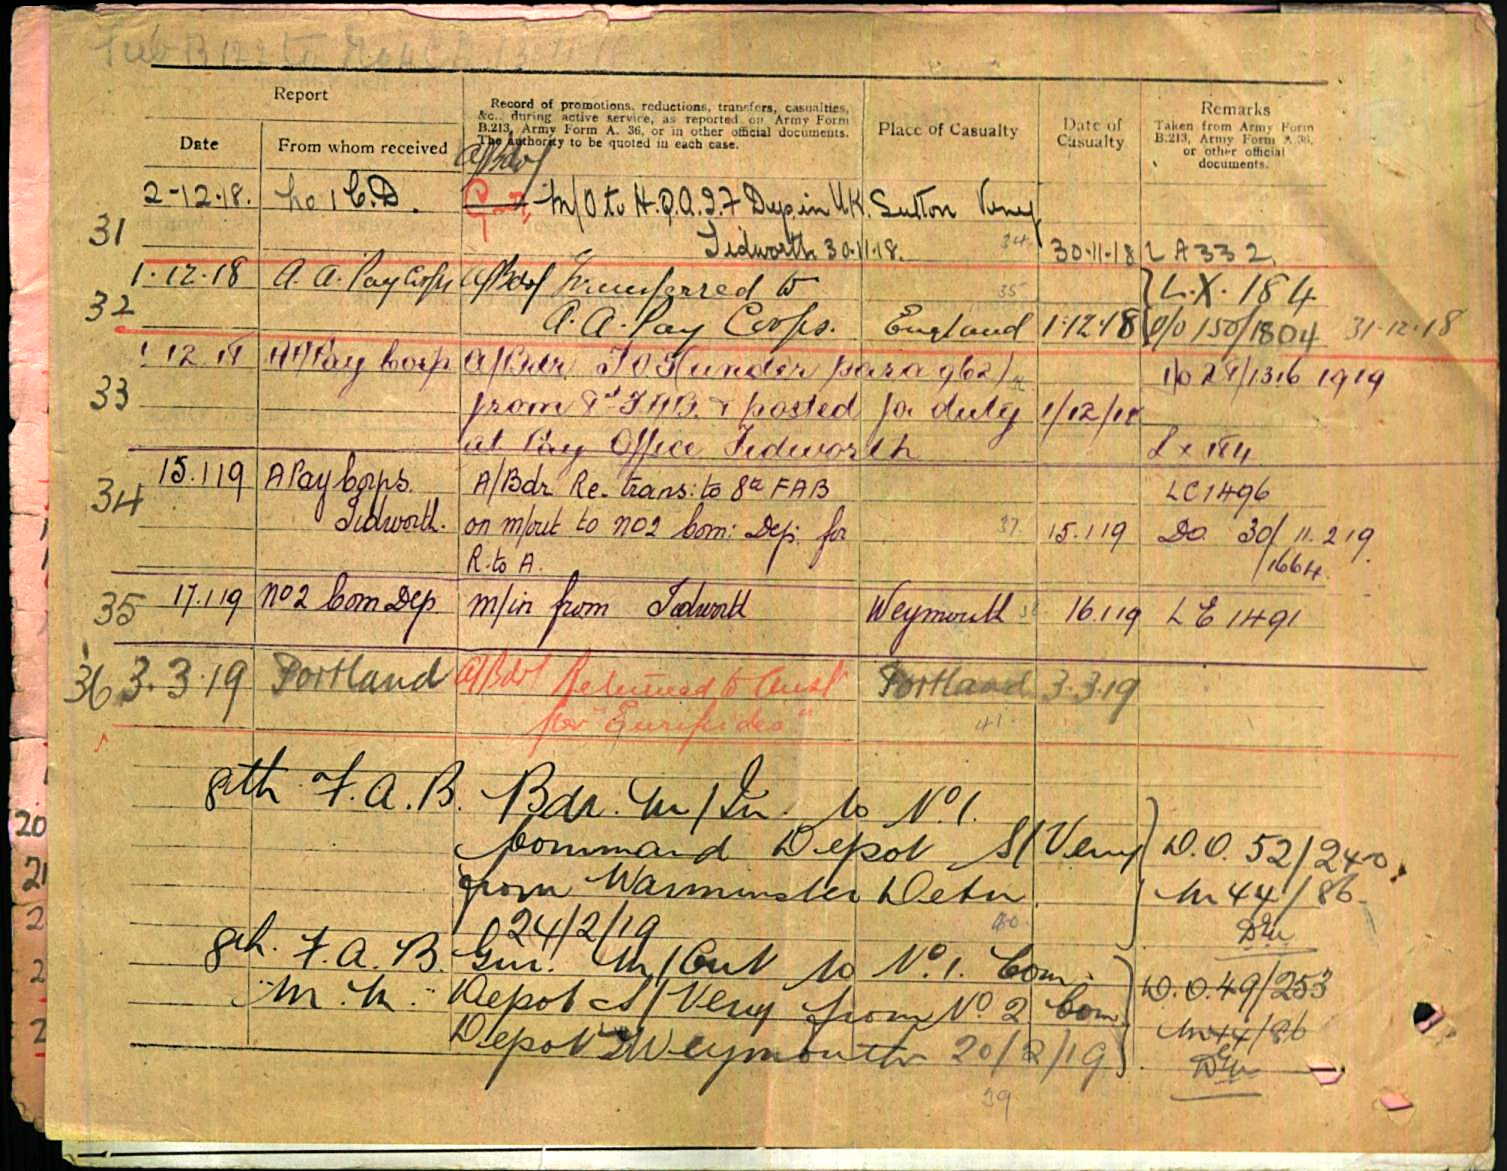 Report
Record of promotions, reductions, transfers, casualties,
&c., during active service, as reported on Army Form
B.213, Army Form A. 36, or in other official documents.
The authority to be quoted in each case.
Place of Casualty
Date of
Casualty
Remarks
Taken from Army Form
B.213, Army Form A.36,
or other official
documents.
Date
From whom received
A/Bdr
31 2-12-18. No 1 C.D. M/O to H.Q. A.I.F Deps in U.K. Sutton Veny
Tidworth 30.11.18. 34 30-11-18 L A 332
32 1-12-18 A. A. Pay Corps A/Bdr Transferred to 35 L.X. 184
A. A. Pay Corps. England 1-12-18 D/O 150/1804 31-12-18
33 1 12 18 AA Pay Corp A/Bdr T O S (under para 962)
from 8th F A B. & posted for duty 1/12/18
at Pay Office Tidworth Lx 184
1316 1919
34 15.1.19 A Pay Corps. A/Bdr Re-trans: to 8th FAB LC 1496
Tidworth. on m/out to No 2 Com: Dep: for 37 15.1.19 Do. 30/ 11.2.19
R. to A. /1664.
35 17.1.19 No 2 Com Dep m/in from Tidworth Weymouth 38 16.1.19 L E 1491
36 3.3.19 Portland A/Bdr Returned to Aust Portland 3.3.19
per "Euripides" 41
8th F. A. B. Bdr. M/In to No 1.
Command Depot S/Veny D.O. 52/240
from Warminster Detn. M 44/86
24/2/19 40
8th. F. A. B. Gnr. M/Out to No. 1. Com. D.O. 49/253
M. M. Depot S/Veny from No 2 Com. M 44/86
Depot Weymouth 20/2/19
39
20
21
2
2
2